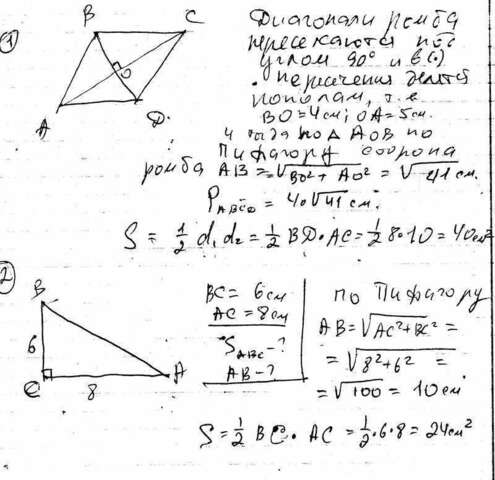 1
B C
A D
O
Диагонали ромба
пересекаются под
углом 90° и в (·)
пересечения делятся
пополам, т.е
BO = 4 см; OA = 5 см.
и тогда по Δ AOB по
Пифагору сторона
ромба AB = √BO² + AO² = √41 см.
P_ABCD = 4·√41 см.
S = 1/2 d₁ d₂ = 1/2 BD·AC = 1/2 8·10 = 40 см²
2
B
6
C A
8
BC = 6 см
AC = 8 см
S_ABC - ?
AB - ?
по Пифагору
AB = √AC² + BC² =
= √8² + 6² =
= √100 = 10 см
S = 1/2 BC · AC = 1/2 · 6 · 8 = 24 см²